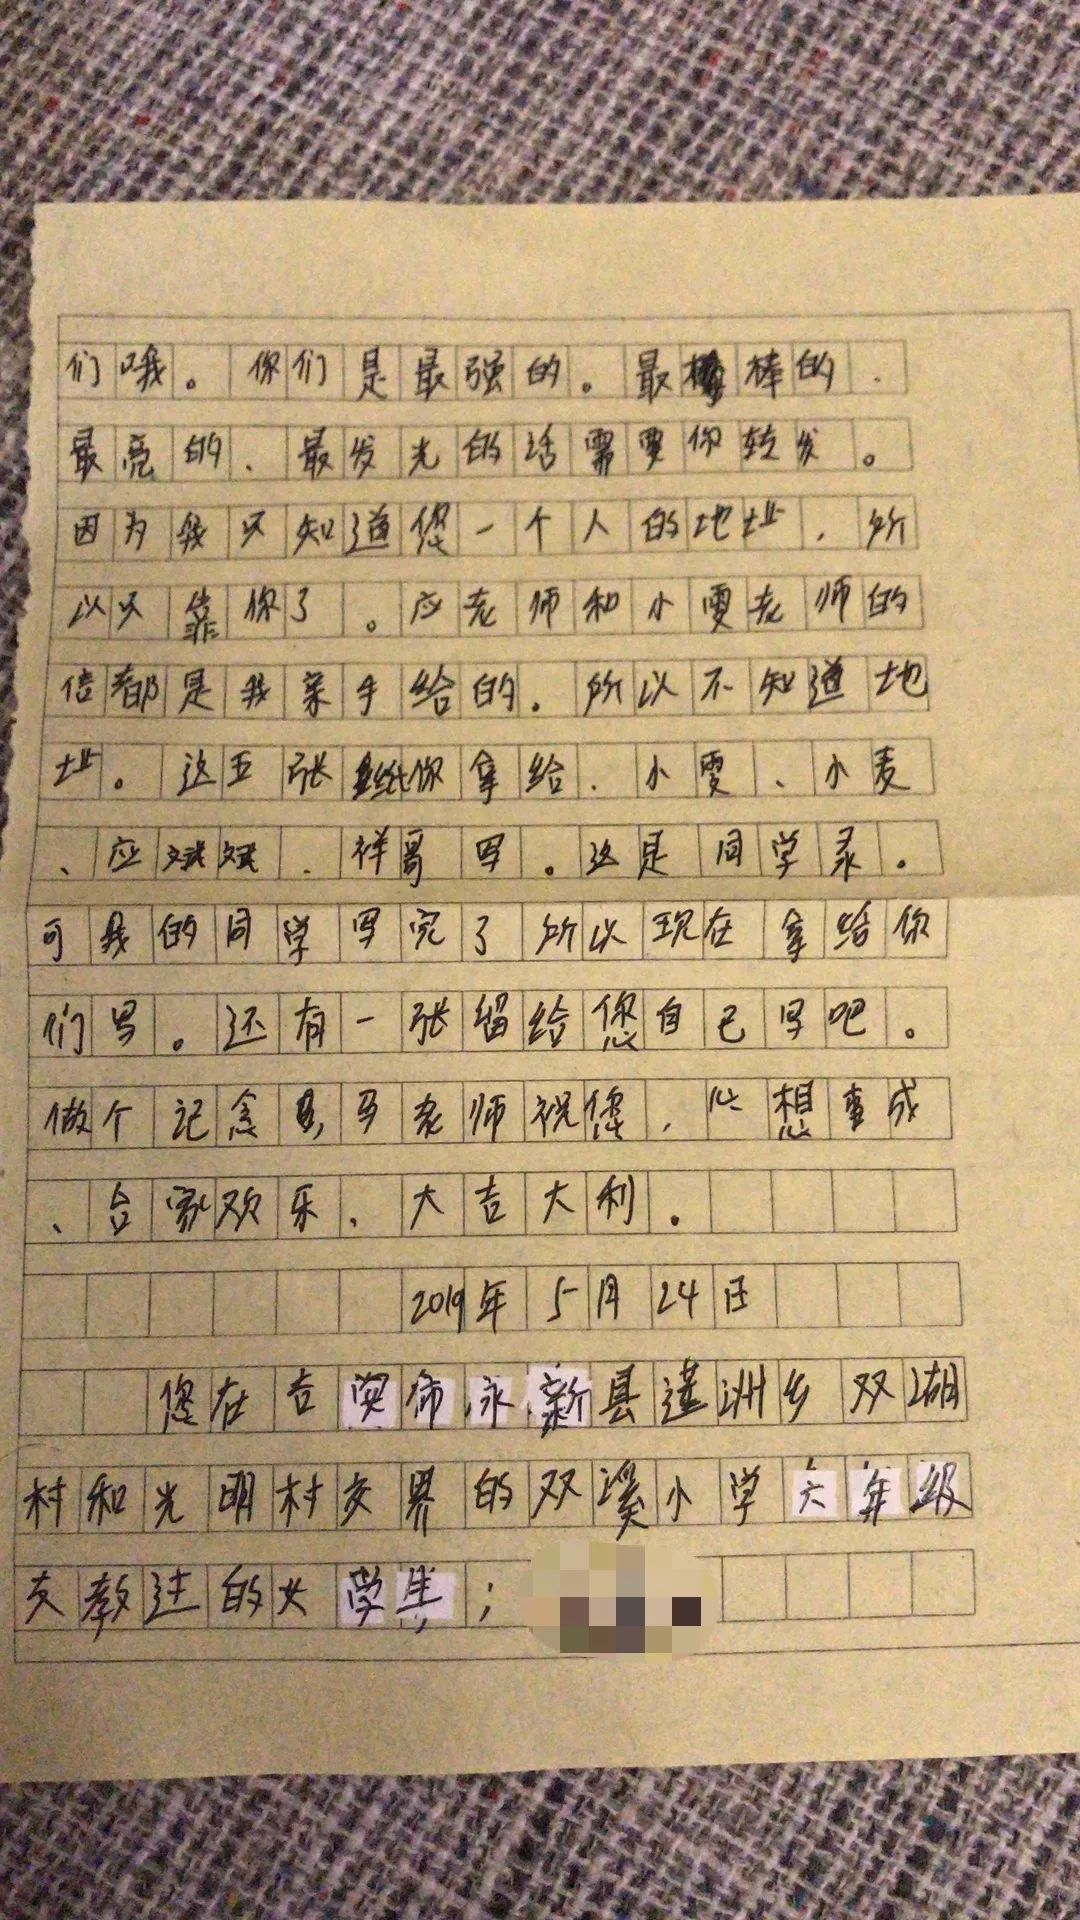 们哦。你们是最强的。最棒的、
最亮的、最发光的话需要你转发。
因为我只知道您一个人的地址，所
以只靠你了。应老师和小雯老师的
信都是我亲手给的。所以不知道地
址。这五张纸你拿给、小雯、小麦
、应斌斌、祥哥写。这是同学录。
可我的同学写完了所以现在拿给你
们写。还有一张留给您自己写吧。
做个记念 马老师祝您，心想事成
、合家欢乐、大吉大利。
2019年5月24日
您在吉安市永新县莲洲乡双湖
村和光明村交界的双溪小学六年级
支教过的女学生；